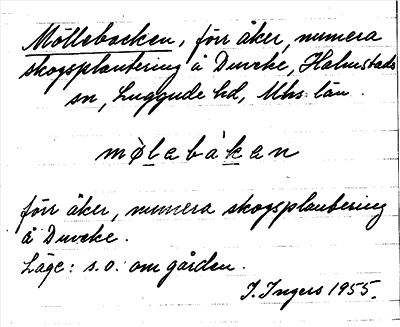 Möllebacken, förr åker, numera
skogsplantering å Duveke, Halmstads
sn, Luggude hd, Mhs. län.
mølabåkan
förr åker, numera skogsplantering
å Duveke.
Läge: s.o. om gården.
I. Ingers 1955.